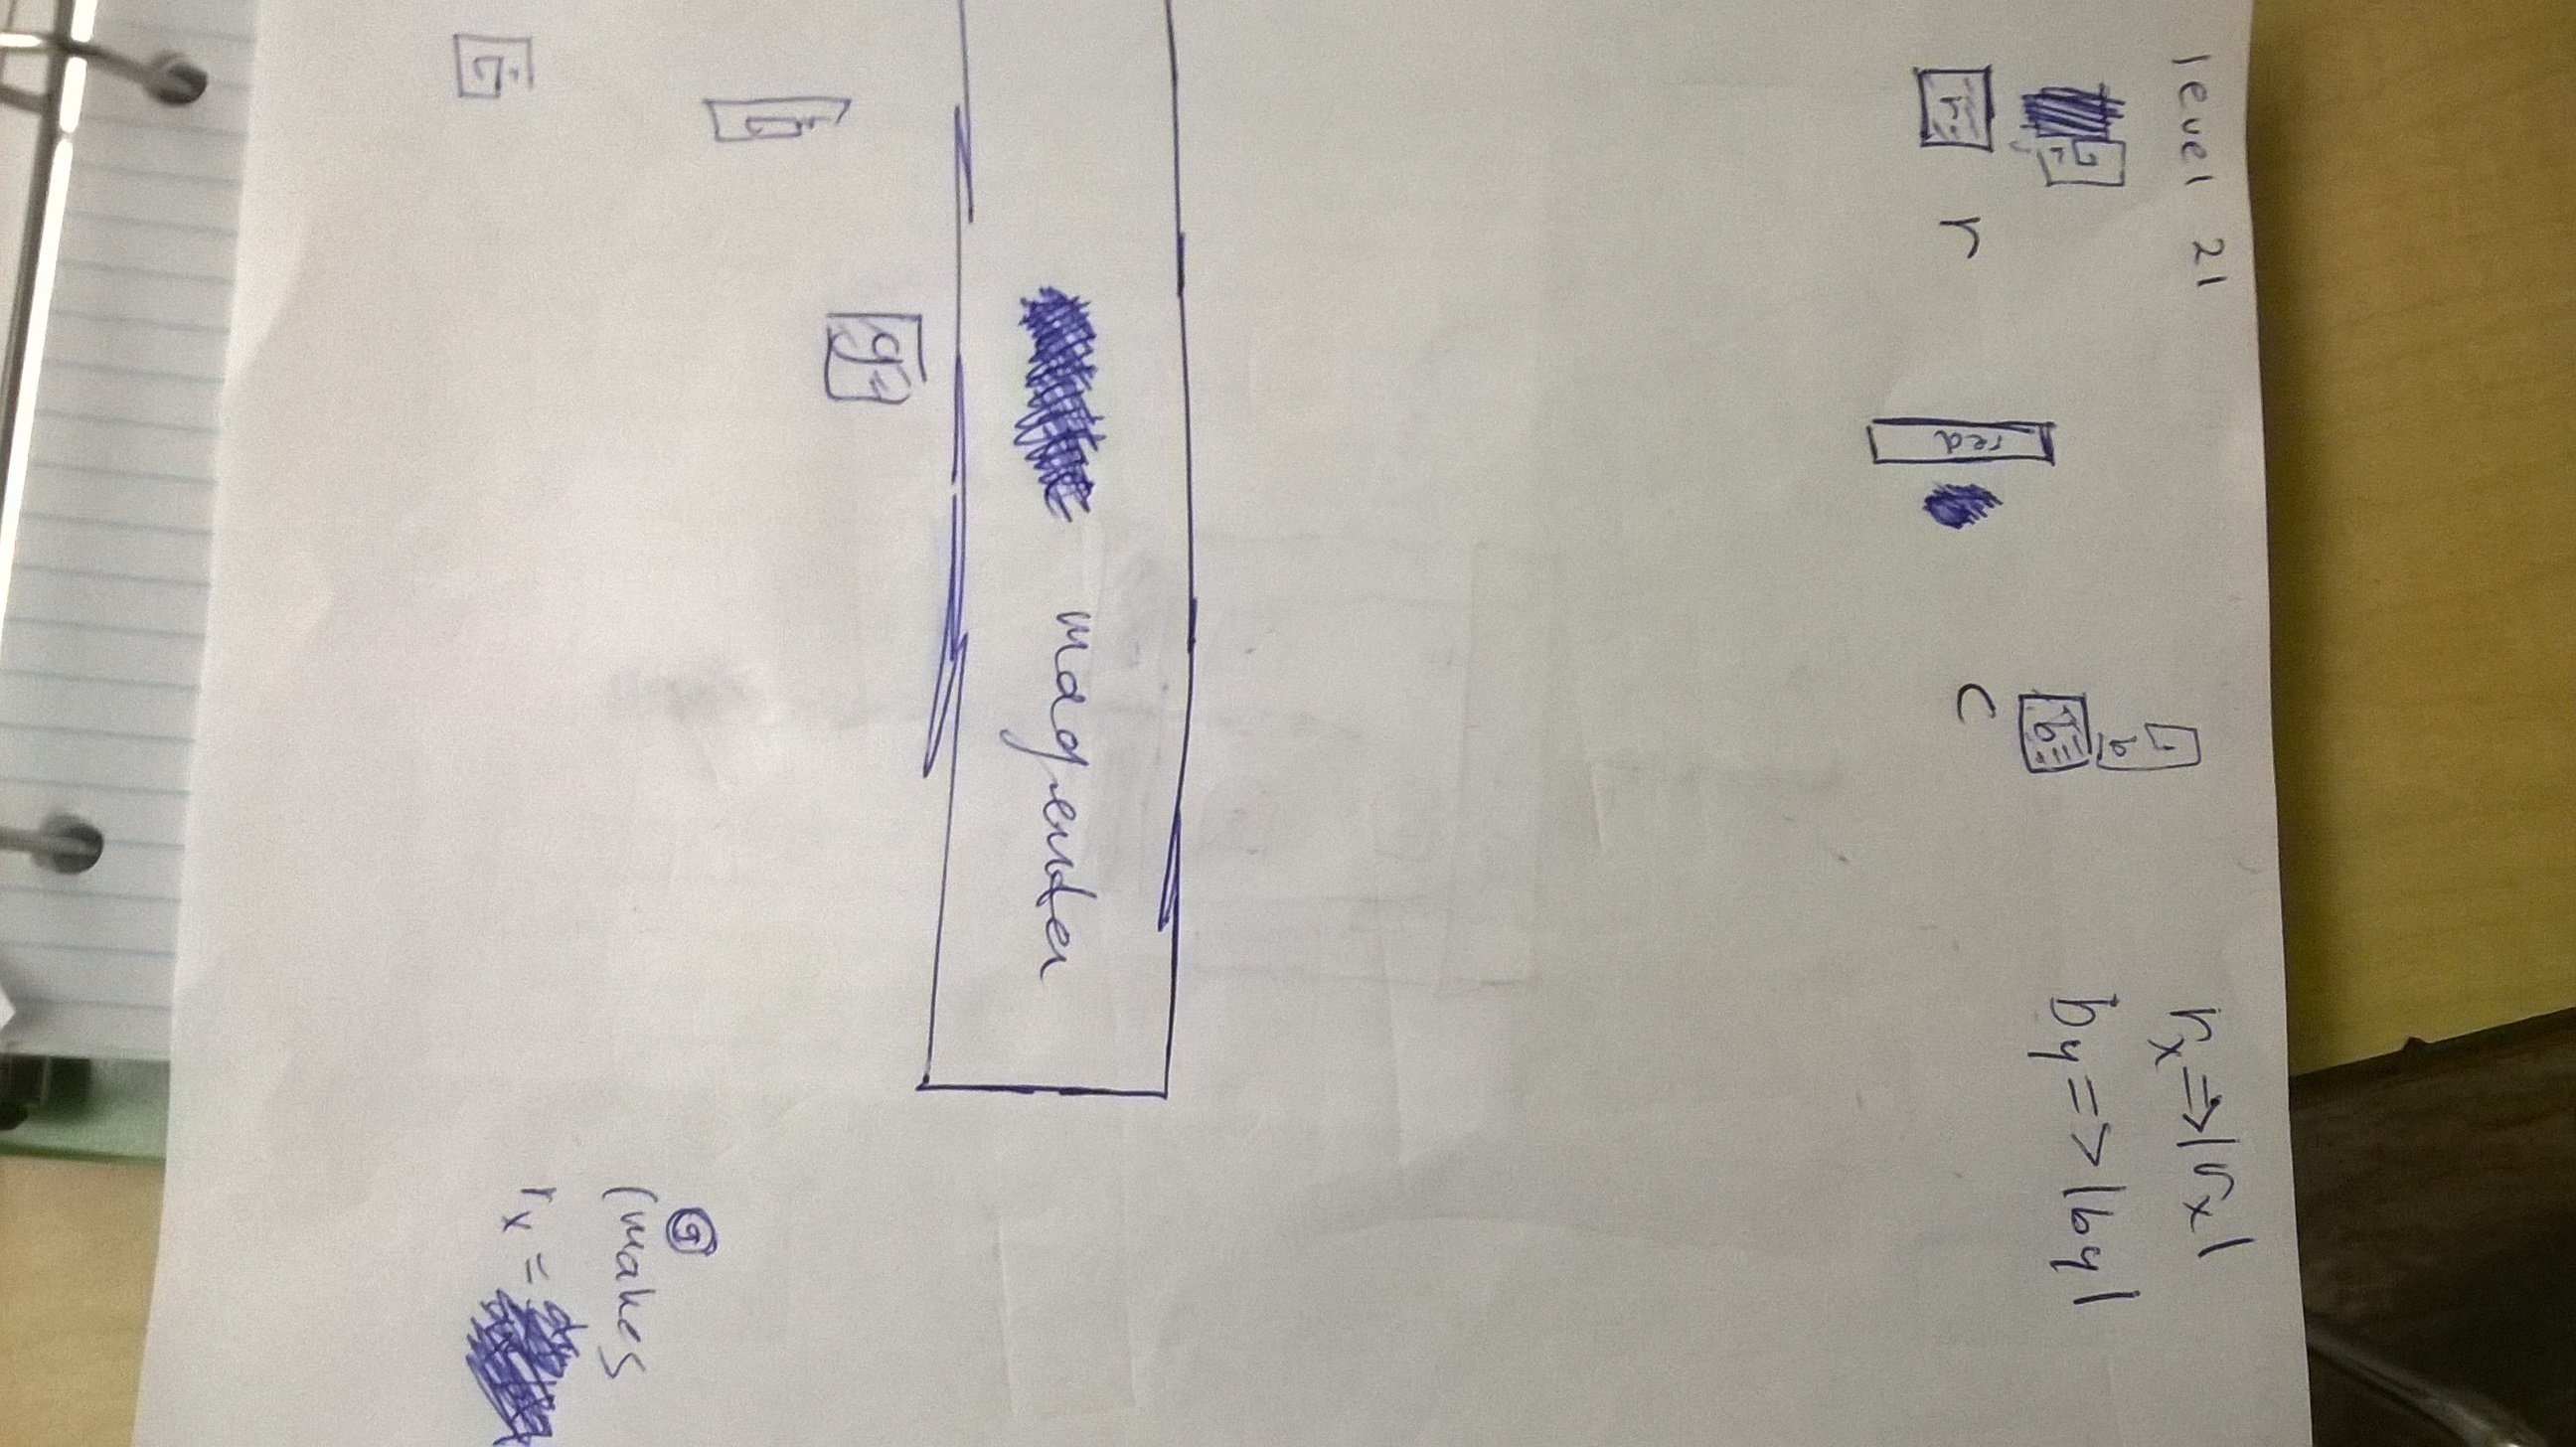 level 21
r
r
red
c
b
b
rx => |rx|
by => |by|
magenter
g
G
(makes
rx =